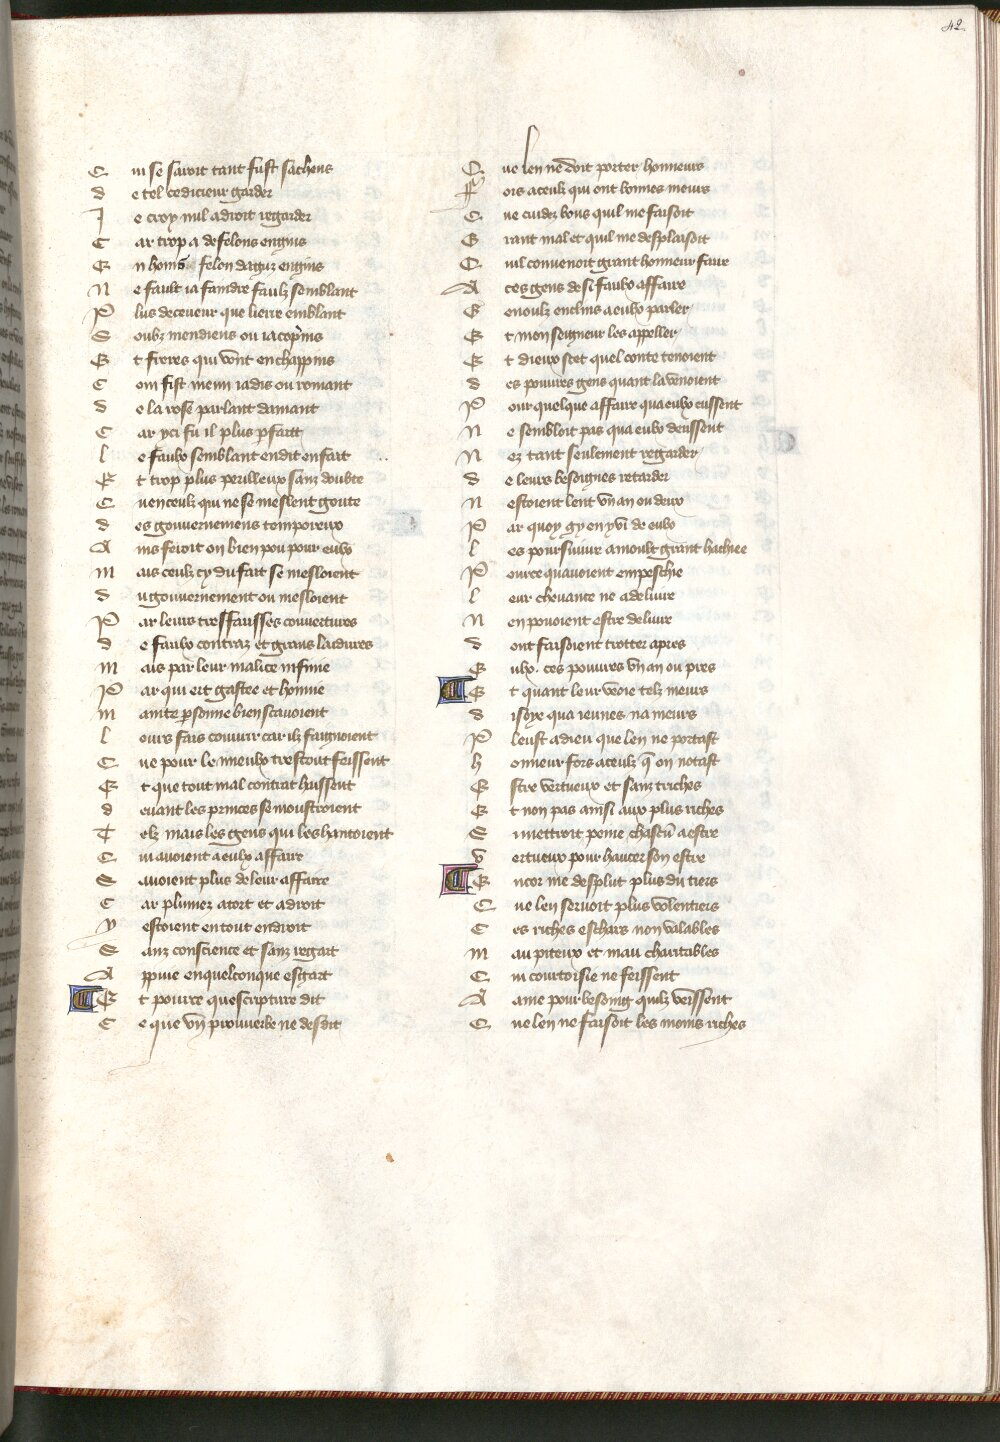 42
Qui se savoit tant fust sachens
de tel cedicieur garder
Je croy nul a droit regarder
Car trop a de felons engins
En homs felon daguz engins
Ne fault ia faindre faulz semblant
Plus deceveur que lierre emblant
Soubz mendiens ou iacopins
Et freres qui vont en chappins
Com fist meun iadis ou romant
de la rose parlant damant
Car yci fu il plus pfait
le faulx semblant en dit en fait
Et trop plus perilleux sanz doubte
Quen ceulx qui ne se meslent goute
des gouvernemens temporeux
Ains feroit on bien pou pour eulx
mais ceulx cy du fait se mesloient
du gouvernement ou mesloient
Par leurs tresfausses couvertures
de faulx contraz et grans laidures
mais par leur malice infinie
Par qui ert gastee et honnie
mainte psonne bien scavoient
lours fais couvrir car ilz faignoient
Que pour le mieulx trestout feissent
Et que tout mal contrat haissent
devant les princes se monstroient
Telz mais les gens qui les hantoient
Qui avoient a eulx affaire
Savoient plus de leur affaire
Car plumez a tort et a droit
y estoient en tout endroit
Sanz conscience et sanz regart
Appuie en quelconque esgart
Et pource quescripture dit
Ce que vng prouverbe ne desdit
Que len ne doit porter honneurs
Fors a ceulz qui ont bonnes meurs
Que cuidez vous quil me faisoit
Grant mal et quil me desplaisoit
Quil convenoit grant honneur faire
A ces gens de si faulx affaire
Genoulz enclins a eulx parler
Et monseigneur les appeller
Et dieux scet quel conte tenoient
des povres gens quant la venoient
Pour quelque affaire qua eulx eussent
Ne sembloit pas qua eulx deussent
Nez tant seulement regarder
de leurs besoignes retarder
Nestoient lent vn an ou deux
Par quoy gy en y vi de eulx
les poursuivre a moult grant hachiee
Pource quavoient empeschie
leur chevance ne a delivre
Nen povoient estre delivre
dont faisoient trotter apres
Eulx ces povres vn an ou pres
Et quant leur veoie telz meurs
disoye qua ieunes na meurs
Pleust a dieu que len ne portast
honneur fors a ceulz q̄ on notast
Estre vertueux et sanz triches
Et non pas ainsi aux plus riches
Si mettroit peine chascū a estre
Vertueux pour haucer son estre
Encor me desplut plus du tiers
Que len servoit plus volentiers
Ces riches eschars non valables
mau piteux et mau charitables
Qui courtoisie ne feissent
A ame pour besoing quilz veissent
Que len ne faisoit les moins riches